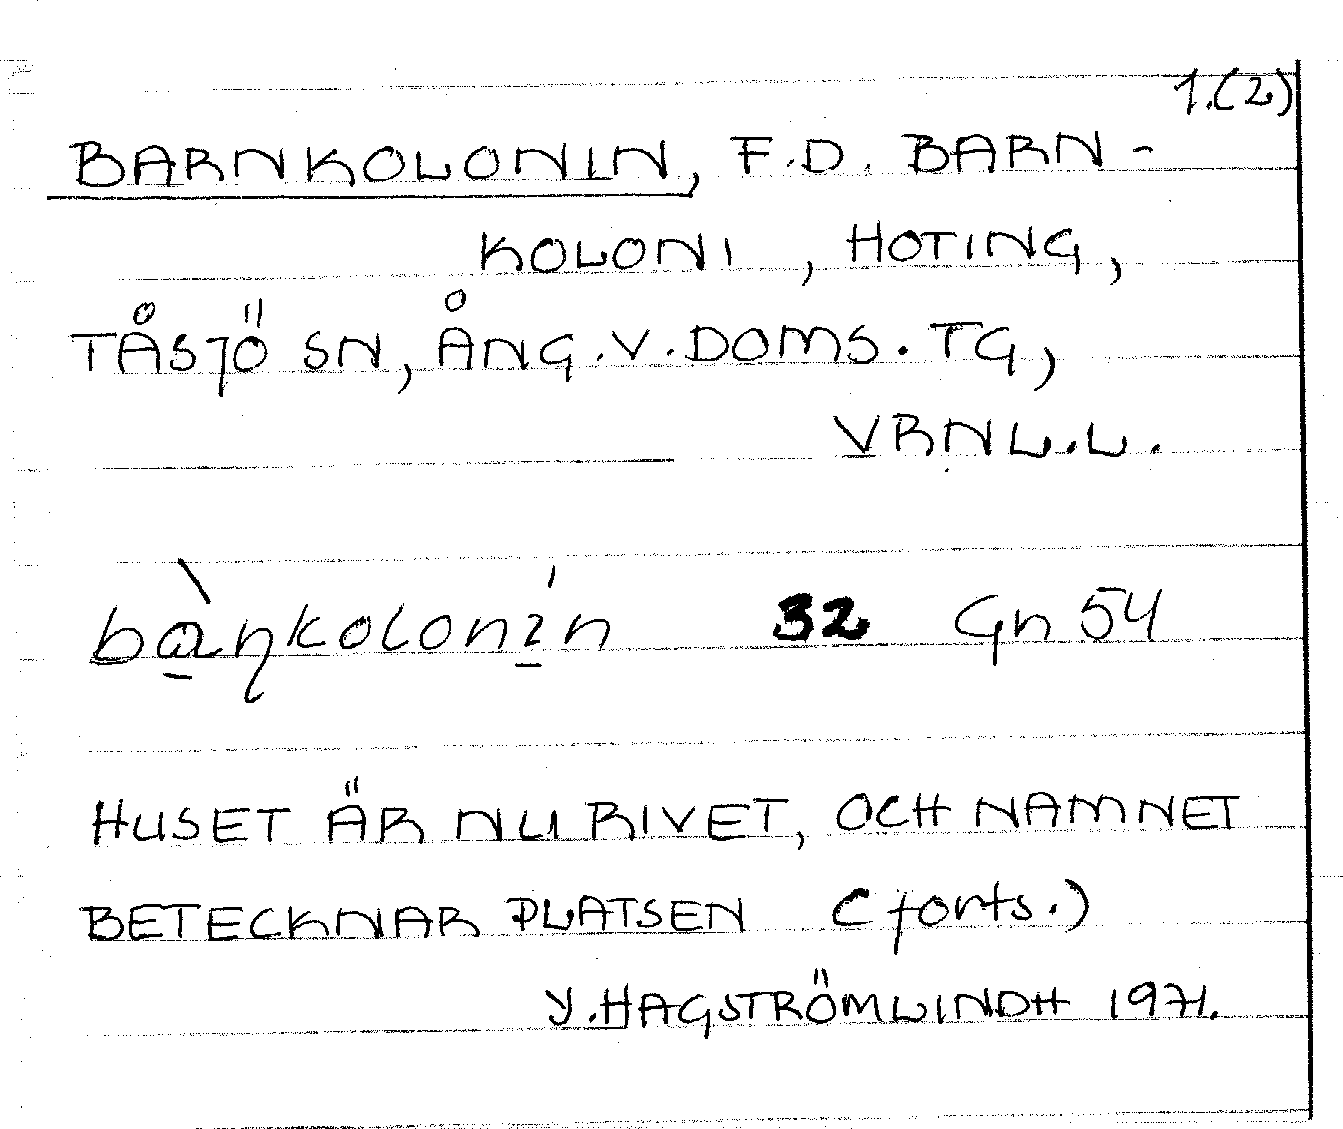 1.(2)
BARNKOLONIN, F.D. BARN-
KOLONI, HOTING,
TÅSJÖ SN, ÅNG.V.DOMS.TG,
VRNL.L.
bàŋkolonín 32 Gn 54
HUSET ÄR NU RIVET, OCH NAMNET
BETECKNAR PLATSEN (forts.)
Y.HAGSTRÖMLINDH 1971.